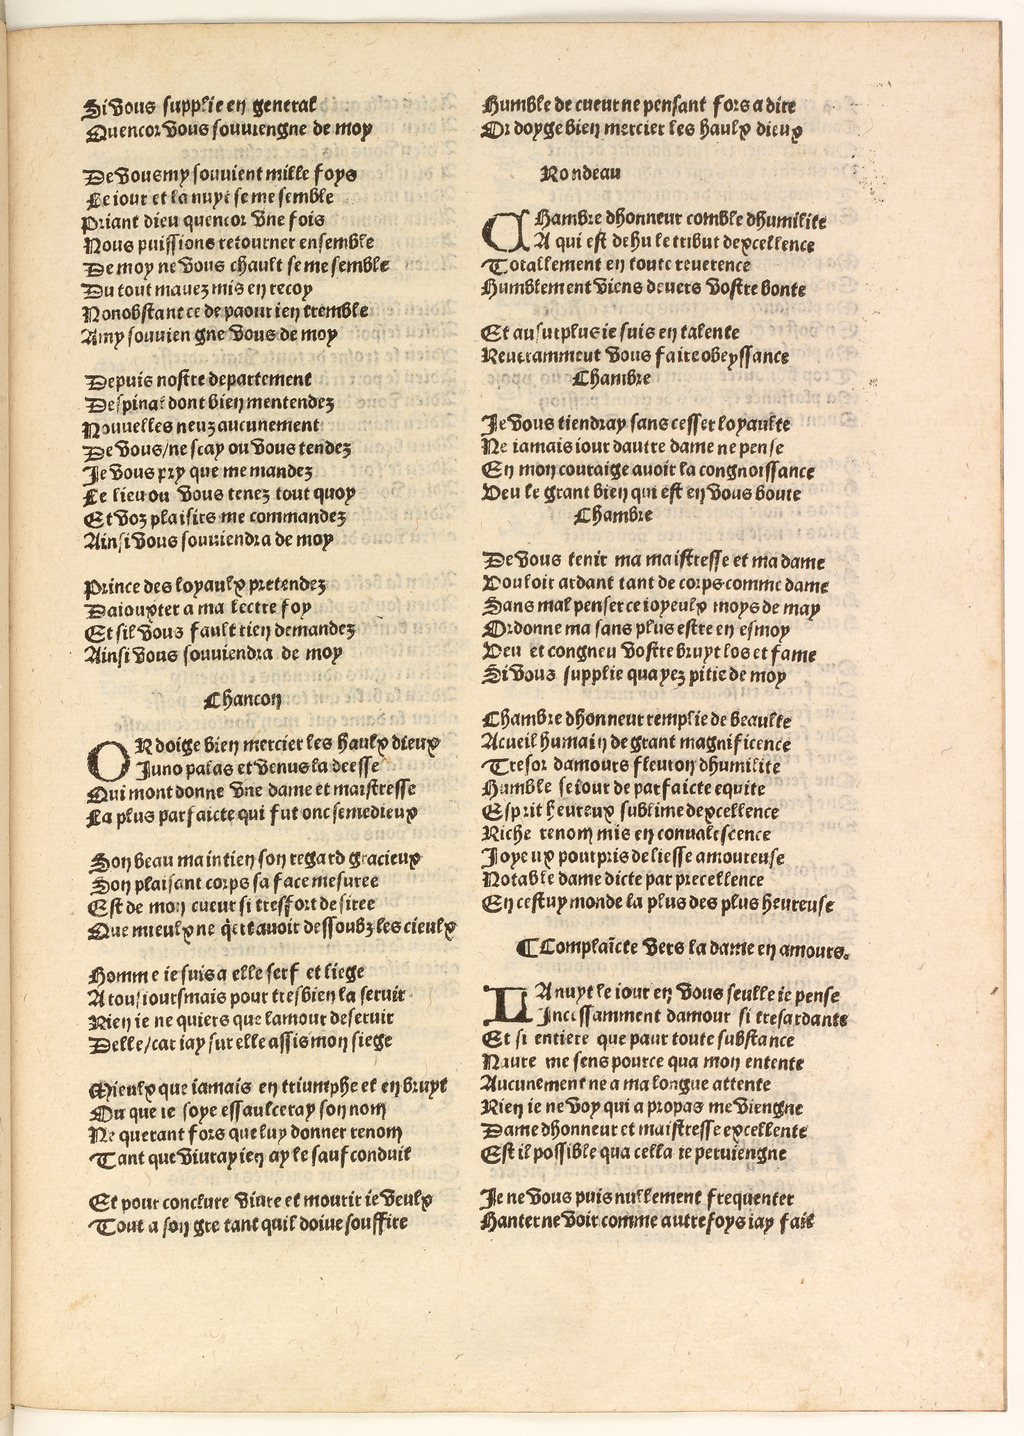 Si vous supplie en general
Quencor vous souviengne de moy
De vous my souvient mille foys
Le iour et la nuyt se me semble
Priant dieu quencor vne fois
Nous puissions retourner ensemble
De moy ne vous chault se me semble
Du tout mavez mis en recoy
Nonobstant ce de paour ien tremble
Amy souviengne vous de moy
Depuis nostre departement
Despinal dont bien mentendez
Nouuelles neuz aucunement
De vous/ne scay ou vous tendez
Je vous pry que me mandez
Le lieu ou vous tenez tout quoy
Et voz plaisirs me commandez
Ainsi vous souuiendra de moy
Prince des loyaulx pretendez
Daiouxter a ma lectre foy
Et sil vous fault rien demandez
Ainsi vous souuiendra de moy
Chancon
OR doige bien mercier les haulx dieux
Juno palas et venus la deesse
Qui mont donne vne dame et maistresse
La plus parfaicte qui fut onc semedieux
Son beau maintien son regard gracieux
Son plaisant corps sa face mesuree
Est de mon cueur si tresfort desiree
Que mieulx ne q̃rtauoir dessoubz les cieulx
Homme ie suis a elle serf et liege
A tousiours mais pour tresbien la seruir
Rien ie ne quiers que lamour deseruir
Delle/car iay sur elle assis mon siege
Mieulx que iamais en triumphe et en bruyt
Ou que ie soye essaulceray son nom
Ne querant fors que luy donner renom
Tant que viuray ien ay le saufconduit
Et pour conclure viure et mourir ie veulx
Tout a son gre tant quil doiue souffire
Humble de cueur ne pensant fors a dire
Or doyge bien mercier les haulx dieux
Rondeau
CHambre dhonneur comble dhumilite
A qui est dehu le tribut dexcellence
Totallement en toute reuerence
Humblement viens deuers vostre bonte
Et au surplus ie suis en talente
Reuerammeut vous faire obeyssance
Chambre
Je vous tiendray sans cesser loyaulte
Ne iamais iour dautre dame ne pense
En mon couraige auoir la congnoissance
Veu le grant bien qui est en vous boute
Chambre
De vous tenir ma maistresse et ma dame
Vouloir ardant tant de corps comme dame
Sans mal penser ce ioyeulx moys de may
Ordonne ma sans plus estre en esmoy
Veu et congneu vostre bruyt los et fame
Si vous supplie quayez pitie de moy
Chambre dhonneur remplie de beaulte
Acueil humain de grant magnificence
Tresor damours fleuron dhumilite
Humble seiour de parfaicte equite
Esprit heureux sublime dexcellence
Riche renom mis en conualescence
Joyeux pourpris de liesse amoureuse
Notable dame dicte par precellence
En cestuy monde la plus des plus heureuse
¶Complaicte vers la dame en amours.
LA nuyt le iour en vous seulle ie pense
Incessamment damour si tresardante
Et si entiere que paur toute substance
Naure me sens pource qua mon entente
Aucunement ne a ma longue attente
Rien ie ne voy qui a propas me viengne
Dame dhonneur et maistresse excellente
Est il possible qua cella ie peruiengne
Je ne vous puis nullement frequenter
Hanter ne voir comme autrefoys iay fait